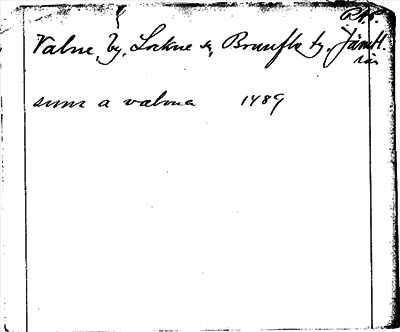 Valne, by, Lockne sn, Brunflo tg. Jämtl.
län
sune a valnæ 1489